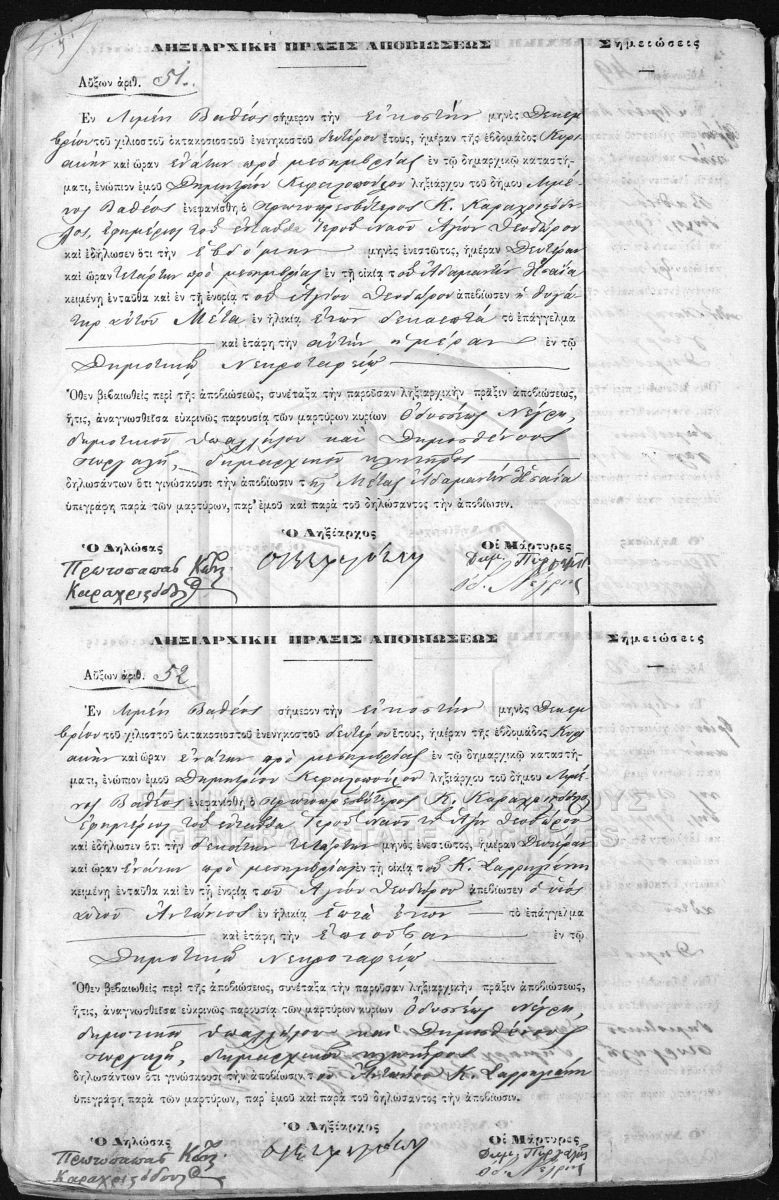 ΛΗΞΙΑΡΧΙΚΗ ΠΡΑΞΙΣ ΑΠΟΒΙΩΣΕΩΣ
Σημειώσεις
Αὔξων ἀριθ. 51.
Ἐν Λιμένι Βαθέος σήμερον τὴν εἰκοστὴν μηνὸς Δεκεμ
βρίου τοῦ χιλιοστοῦ ὀκτακοσιοστοῦ ἐνενηκοστοῦ δευτέρου ἔτους, ἡμέραν τῆς ἑβδομάδος Κυρι
ακὴν καὶ ὥραν ἐνάτην πρὸ μεσημβρίας ἐν τῷ δημαρχικῷ καταστή-
ματι, ἐνώπιον ἐμοῦ Δημητρίου ληξιάρχου τοῦ δήμου Λιμέ
νος Βαθέος ἐνεφανίσθη ὁ πρωτοπρεσβύτερος Κ. Καραχριςόδυ
λος, ἐφημέριος τοῦ ἐνταῦθα ἱεροῦ ναοῦ Ἁγίου Θεοδώρου
καὶ ἐδήλωσεν ὅτι τὴν ἑβδόμην μηνὸς ἐνεστῶτος, ἡμέραν Δευτέραν
καὶ ὥραν τετάρτην πρὸ μεσημβρίας ἐν τῇ οἰκίᾳ τοῦ Ἀδαμαντίου Ἡσαΐα
κειμένῃ ἐνταῦθα καὶ ἐν τῇ ἐνορίᾳ τοῦ Ἁγίου Θεοδώρου ἀπεβίωσεν ἡ θυγά
τηρ αὐτοῦ Μέτα ἐν ἡλικίᾳ ἐτῶν δεκαεπτά τὸ ἐπάγγελμα
καὶ ἐτάφη τὴν αὐτὴν ἡμέραν ἐν τῷ
Δημοτικῷ Νεκροταφείῳ
Ὅθεν βεβαιωθεὶς περὶ τῆς ἀποβιώσεως, συνέταξα τὴν παροῦσαν ληξιαρχικὴν πρᾶξιν ἀποβιώσεως,
ἥτις, ἀναγνωσθεῖσα εὐκρινῶς παρουσίᾳ τῶν μαρτύρων κυρίων Ὀδυσσέως Νέγρη,
δημοτικοῦ ὑπαλλήλου καὶ Δημοσθένους
δημαρχικοῦ κλητῆρος
δηλωσάντων ὅτι γινώσκουσι τὴν ἀποβίωσιν τῆς Μέτας Ἀδαμαντίου Ἡσαΐα
ὑπεγράφη παρὰ τῶν μαρτύρων, παρ' ἐμοῦ καὶ παρὰ τοῦ δηλώσαντος τὴν ἀποβίωσιν.
Ὁ Δηλώσας Ὁ Ληξίαρχος Οἱ Μάρτυρες
Πρωτοπαπᾶς
Ὀδ. Νέγρης
ΛΗΞΙΑΡΧΙΚΗ ΠΡΑΞΙΣ ΑΠΟΒΙΩΣΕΩΣ
Σημειώσεις
Αὔξων ἀριθ. 52
Ἐν Λιμένι Βαθέος σήμερον τὴν εἰκοστὴν μηνὸς Δεκεμ
βρίου τοῦ χιλιοστοῦ ὀκτακοσιοστοῦ ἐνενηκοστοῦ δευτέρου ἔτους, ἡμέραν τῆς ἑβδομάδος Κυρι
ακὴν καὶ ὥραν ἐνάτην πρὸ μεσημβρίας ἐν τῷ δημαρχικῷ καταστή-
ματι, ἐνώπιον ἐμοῦ Δημητρίου ληξιάρχου τοῦ δήμου Λιμέ
νος Βαθέος ἐνεφανίσθη ὁ πρωτοπρεσβύτερος Κ.
ἐφημέριος τοῦ ἐνταῦθα ἱεροῦ Ναοῦ τοῦ Ἁγ. Θεοδώρου
καὶ ἐδήλωσεν ὅτι τὴν δεκάτην τετάρτην μηνὸς ἐνεστῶτος, ἡμέραν Δευτέραν
καὶ ὥραν ἐνάτην πρὸ μεσημβρίας ἐν τῇ οἰκίᾳ τοῦ Κ.
κειμένῃ ἐνταῦθα καὶ ἐν τῇ ἐνορίᾳ τοῦ Ἁγίου Θεοδώρου ἀπεβίωσεν ὁ υἱὸς
αὐτοῦ Ἀντώνιος ἐν ἡλικίᾳ ἑπτὰ ἐτῶν τὸ ἐπάγγελμα
καὶ ἐτάφη τὴν ἐπιοῦσαν ἐν τῷ
Δημοτικῷ Νεκροταφείῳ
Ὅθεν βεβαιωθεὶς περὶ τῆς ἀποβιώσεως, συνέταξα τὴν παροῦσαν ληξιαρχικὴν πρᾶξιν ἀποβιώσεως,
ἥτις, ἀναγνωσθεῖσα εὐκρινῶς παρουσίᾳ τῶν μαρτύρων κυρίων Ὀδυσσέως Νέγρη,
δημοτικοῦ ὑπαλλήλου καὶ Δημοσθένους
δημαρχικοῦ κλητῆρος
δηλωσάντων ὅτι γινώσκουσι τὴν ἀποβίωσιν τοῦ Ἀντωνίου Κ.
ὑπεγράφη παρὰ τῶν μαρτύρων, παρ' ἐμοῦ καὶ παρὰ τοῦ δηλώσαντος τὴν ἀποβίωσιν.
Ὁ Δηλώσας Ὁ Ληξίαρχος Οἱ Μάρτυρες
Πρωτοπαπᾶς
Ὀδ. Νέγρης
GENERAL STATE ARCHIVES